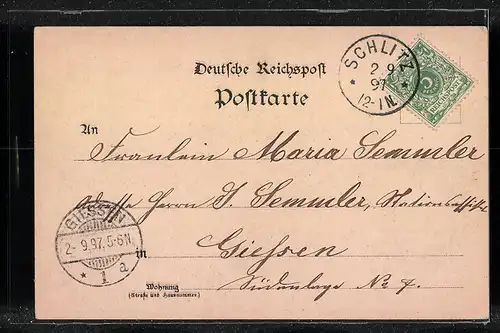 Deutsche Reichspost
Postkarte
SCHLITZ
2 9
97
12-1N.
An
Fraulein Maria Semmler
Adresse Herrn J. Semmler,
in Giessen
Südenlage No 7.
Wohnung
(Straße und Hausnummer.)
GIESSEN
2- 9.97. 5-6N.
* 1 a